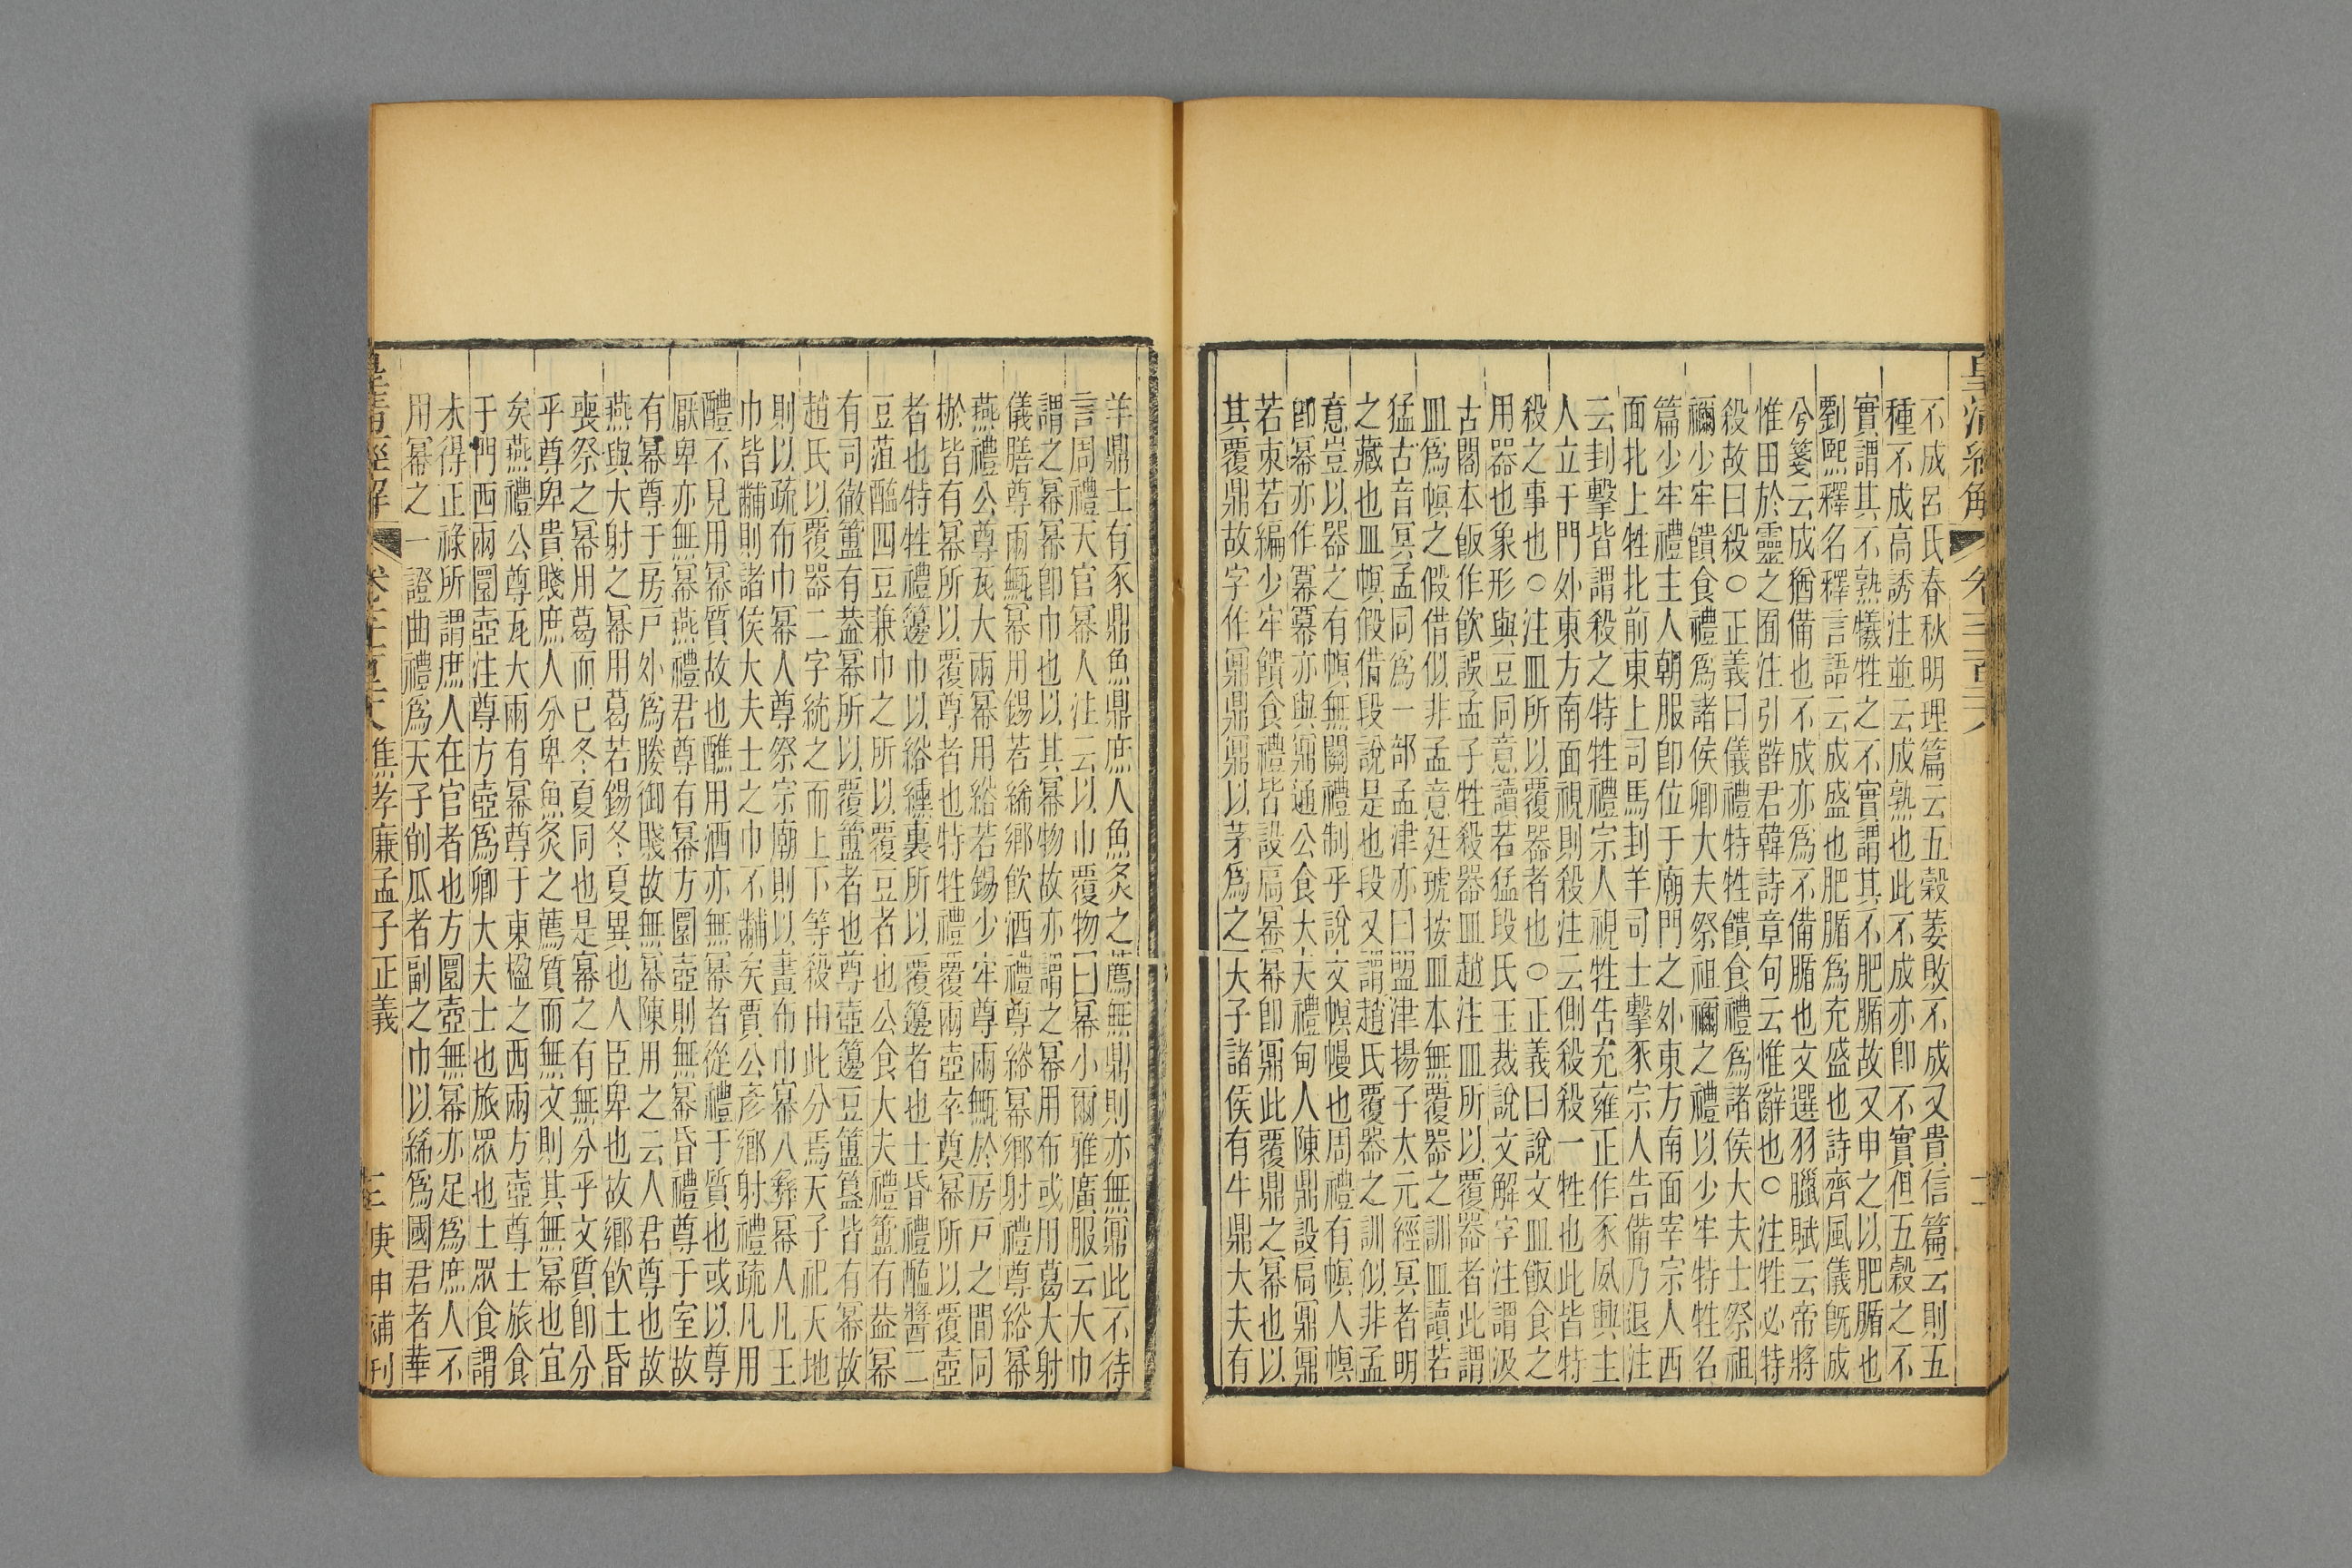 皇清經解
不成呂氏春秋明理篇云五榖萎敗不成又貴信篇云則五
種不成高誘注並云成熟也此不成亦卽不實但五榖之不
實謂其不熟犧牲之不實謂其不肥腯故又申之以肥腯也
劉熙釋名釋言語云成盛也肥腯爲充盛也詩齊風儀旣成
兮箋云成猶備也不成亦爲不備腯也文選羽臘賦云帝將
惟田於靈之囿注引薛君韓詩章句云惟辭也○注牲必特
殺故曰殺○正義曰儀禮特牲饋食禮爲諸侯大夫士祭祖
禰少牢饋食禮爲諸侯卿大夫祭祖禰之禮以少牢特牲名
篇少牢禮主人朝服卽位于廟門之外東方南面宰宗人西
面北上牲北前東上司馬刲羊司士擊豕宗人告備乃退注
云刲擊皆謂殺之特牲禮宗人視牲告充雍正作豕夙興主
人立于門外東方南面視則殺注云側殺殺一牲也此皆特
殺之事也○注皿所以覆器者也○正義曰說文皿飯食之
用器也象形與豆同意讀若猛段氏玉裁說文解字注謂汲
古閣本飯作飲誤孟子牲殺器皿趙注皿所以覆器者此謂
皿爲幎之假借似非孟意廷琥按皿本無覆器之訓皿讀若
猛古音冥孟同爲一部孟津亦曰盟津揚子太元經冥者明
之藏也皿幎假借段說是也段又謂趙氏覆器之訓似非孟
意豈以器之有幎無關禮制乎說文幎幔也周禮有幎人幎
卽冪亦作冪幂亦與鼏通公食大夫禮甸人陳鼎設扃鼏鼏
若束若編少牢饋食禮皆設扃冪冪卽鼏此覆鼎之冪也以
其覆鼎故字作鼏鼎鼏以茅爲之天子諸侯有牛鼎大夫有
羊鼎士有豕鼎魚鼎庶人魚炙之薦無鼎則亦無鼏此不待
言周禮天官冪人注云以巾覆物曰冪小爾雅廣服云大巾
謂之冪冪卽巾也以其冪物故亦謂之冪用布或用葛大射
儀膳尊兩甒冪用錫若絺鄉飲酒禮尊綌冪鄉射禮尊綌冪
燕禮公尊瓦大兩冪用綌若錫少牢尊兩甒於房戶之間同
棜皆有冪所以覆尊者也特牲禮覆兩壺卒奠冪所以覆壺
者也特牲禮籩巾以綌纁裏所以覆籩者也士昏禮醯醬二
豆菹醢四豆兼巾之所以覆豆者也公食大夫禮簠有葢冪
有司徹簠有葢冪所以覆簠者也尊壺籩豆簠簋皆有冪故
趙氏以覆器二字統之而上下等殺由此分焉天子祀天地
則以疏布巾冪人尊祭宗廟則以畫布巾冪八彝冪人凡王
巾皆黼則諸侯大夫士之巾不黼矣賈公彥鄉射禮疏凡用
醴不見用冪質故也醮用酒亦無冪者從禮于質也或以尊
厭卑亦無冪燕禮君尊有冪方圜壺則無冪昏禮尊于室故
有冪尊于房戶外爲媵御賤故無冪陳用之云人君尊也故
燕與大射之冪用葛若錫冬夏異也人臣卑也故鄉飲士昏
喪祭之冪用葛而已冬夏同也是冪之有無分乎文質卽分
乎尊卑貴賤庶人分卑魚炙之薦質而無文則其無冪也宜
矣燕禮公尊瓦大兩有冪尊于東楹之西兩方壺尊士旅食
于門西兩圜壺注尊方壺爲卿大夫士也旅眾也士眾食謂
未得正祿所謂庶人在官者也方圜壺無冪亦足爲庶人不
用冪之一證曲禮爲天子削瓜者副之巾以絺爲國君者華
焦孝廉孟子正義
庚申補刊